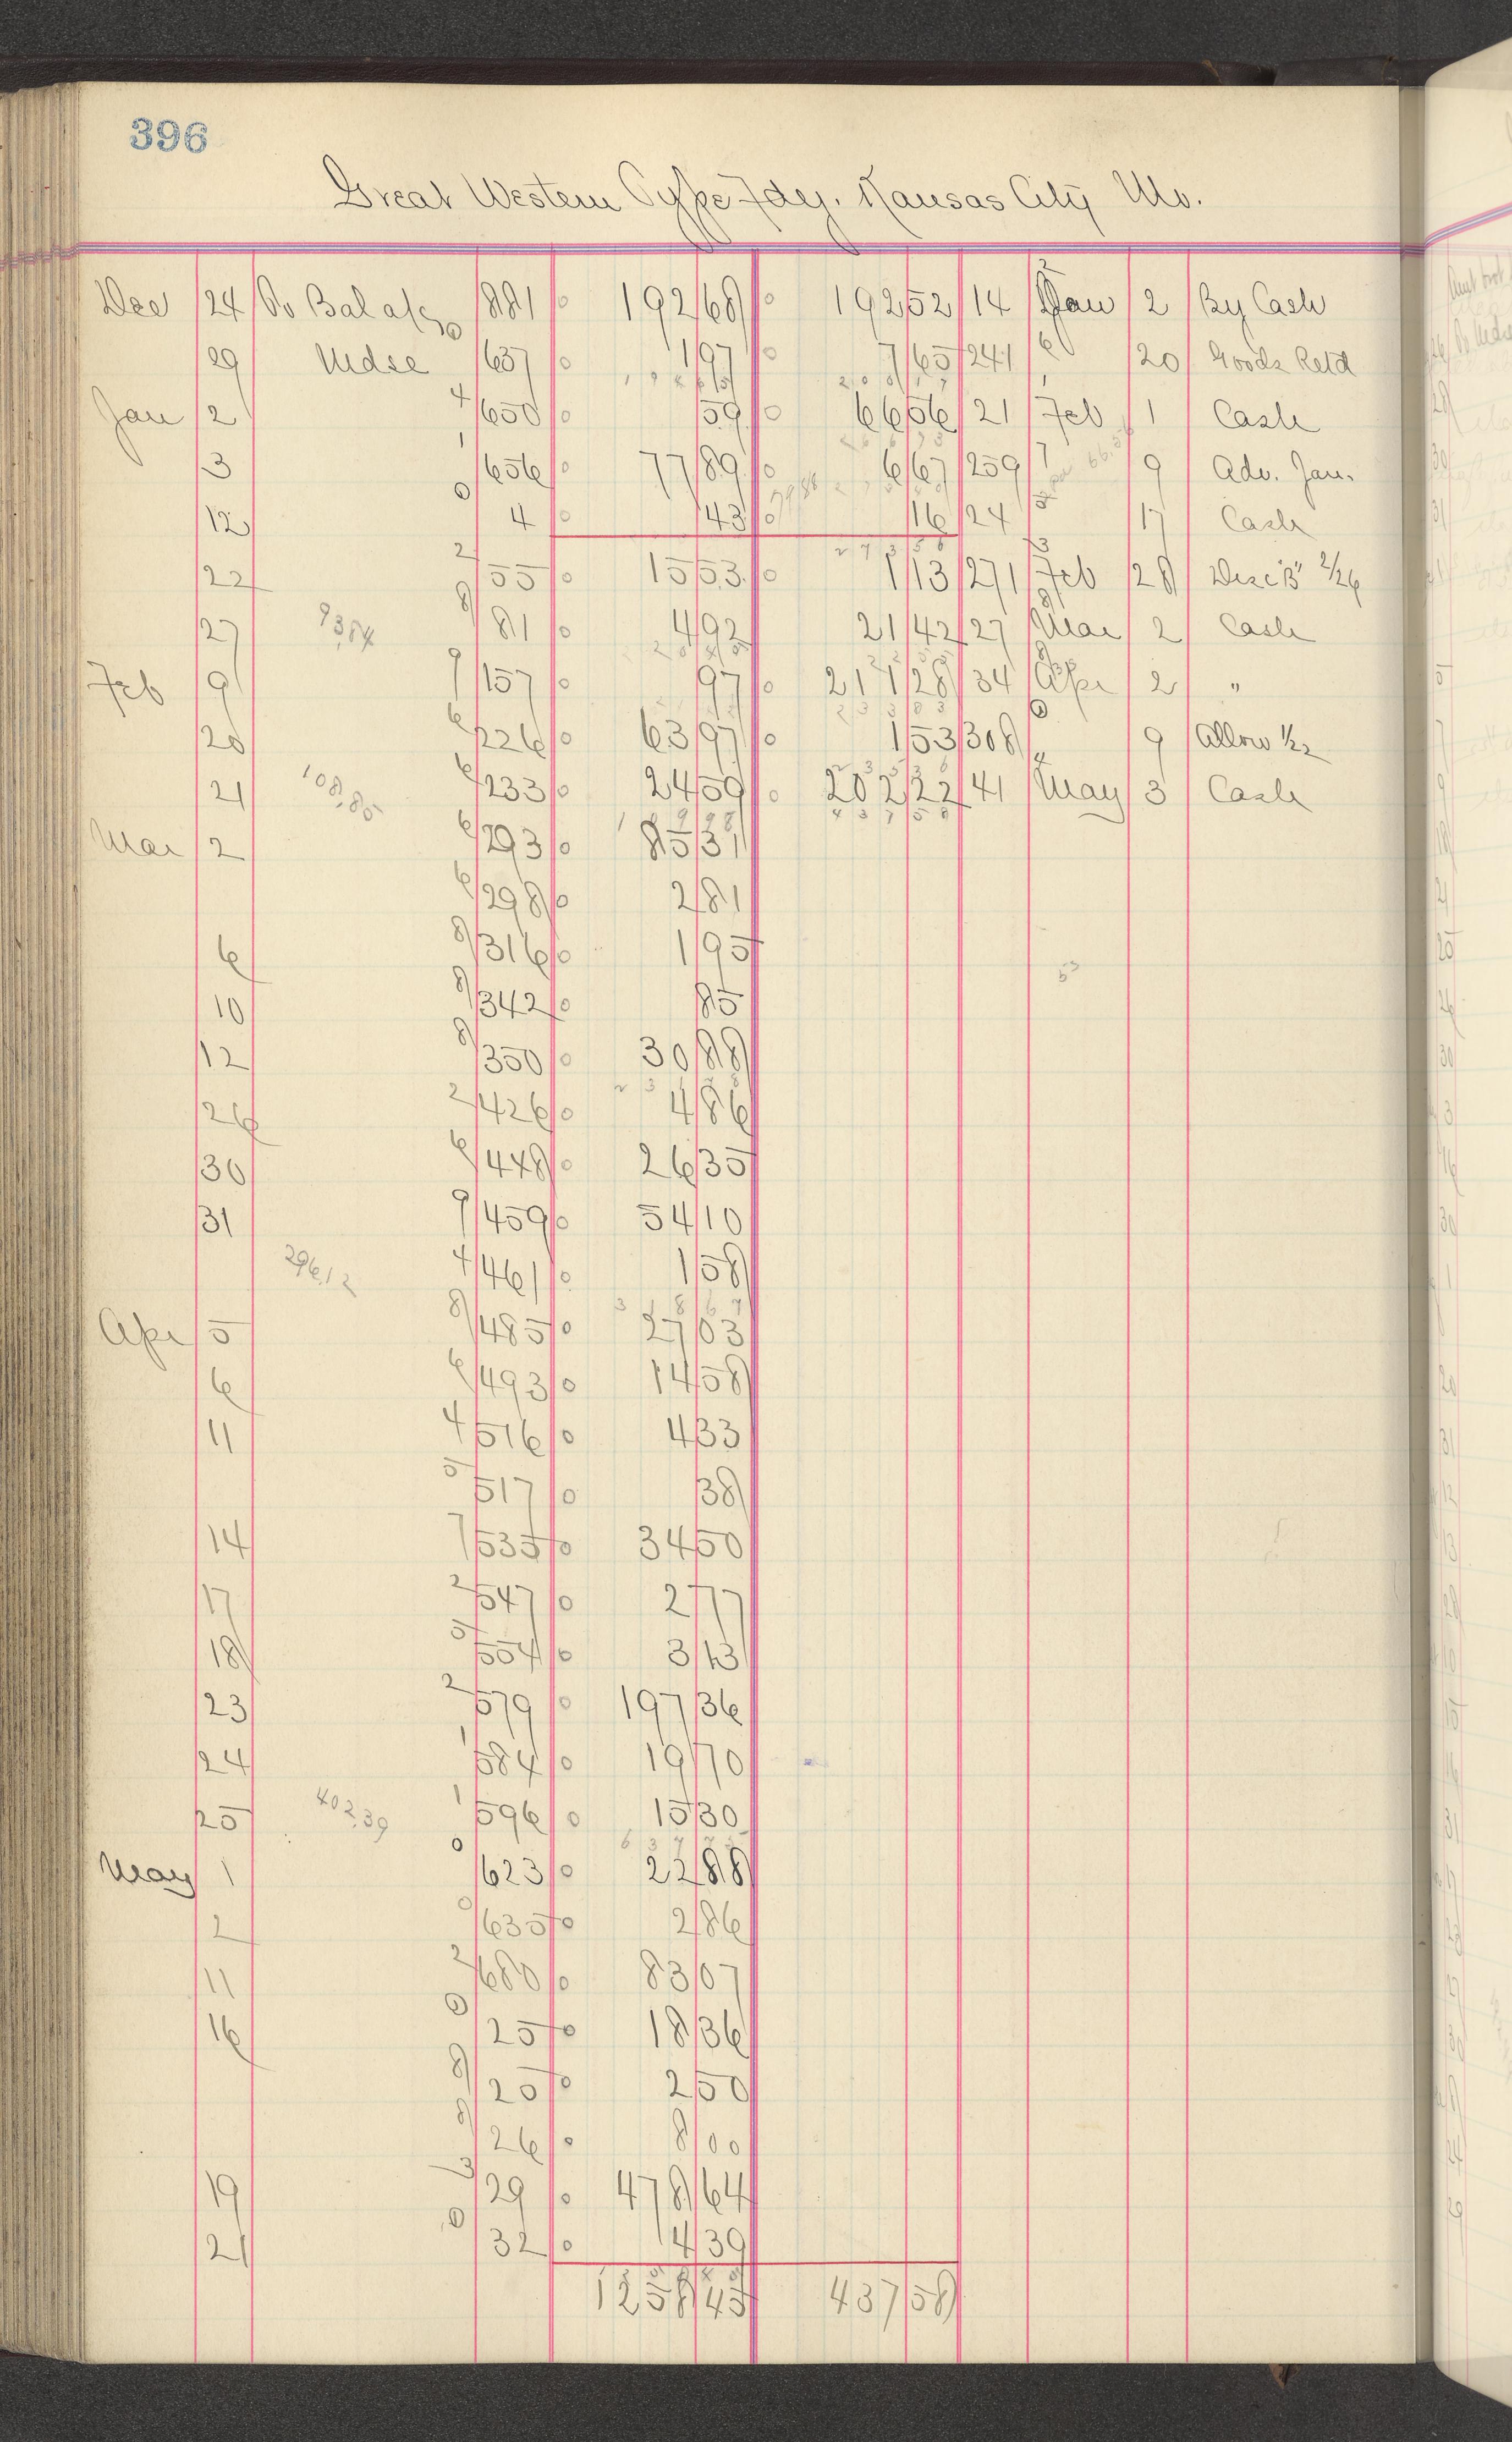 396
Great Western Type Fdy. Kansas City Mo.
Dec 24 To Bal a/c 881 192 68 192 52 14 Jan 2 By Cash
29 Mdse 637 1 97 7 65 241 20 Goods Retd
Jan 2 4/650 59 66 56 21 Feb 1 Cash
3 1/656 77 89 6 67 259 9 Adv. Jan.
12 0/4 43 16 24 17 Cash
22 2/55 15 53 1 13 271 Feb 28 Disc
27 93,84 8/81 4 92 21 42 27 Mar 2 Cash
Feb 9 9/157 97 217 28 34 Apr 2 "
20 6/226 63 97 1 53 308 9 Allow
21 108,85 6/233 24 59 202 22 41 May 3 Cash
Mar 2 6/293 85 31
6/298 2 81
6 8/316 1 95
10 8/342 85
12 8/350 30 88
26 2/426 4 86
30 6/448 26 35
31 9/459 54 10
296,12 4/461 1 58
Apr 5 8/485 27 03
6 6/493 14 58
11 4/516 4 33
5/517 38
14 7/535 34 50
17 2/547 2 77
18 5/554 3 13
23 2/579 197 36
24 1/584 19 70
25 402,39 1/596 15 30
May 1 0/623 22 88
2 0/635 2 86
11 2/680 83 07
16 0/25 18 36
8/25 2 50
8/26 8 00
19 3/29 478 64
21 0/32 14 39
1258 45 437 58